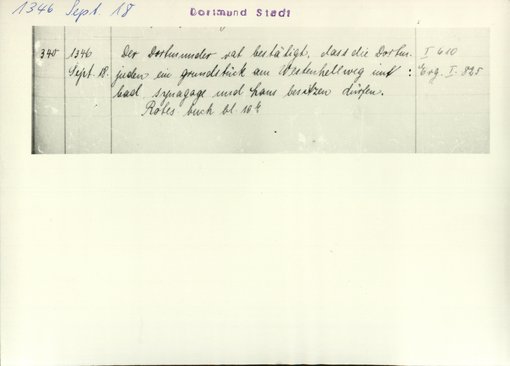 1346 Sept. 18
Dortmund Stadt
340 1346 Der Dortmunder rat bestätigt, dass die Dortm. I 610
Sept. 18. juden ein grundstück am Westenhellweg mit : Erg. I. 825
bad synagage und haus besitzen dürfen.
Rotes buch bl.